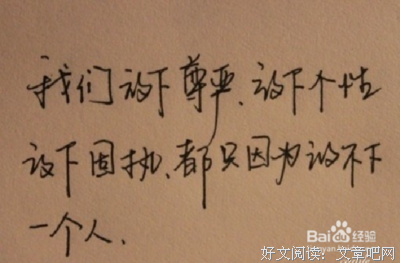 我们放下尊严、放下个性
放下固执、都只因为放不下
一个人、
Bai du 经验
好文阅读：文章吧网